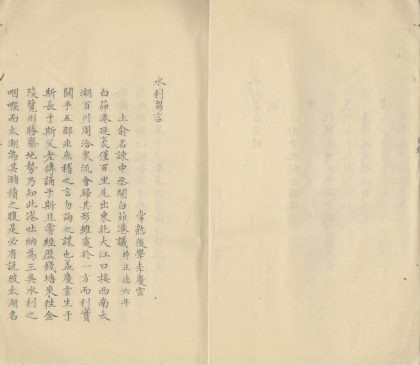 水利芻言
常熟後學李慶雲
上俞名諫中丞開白茆港議時正德六年
白茆港延袤僅百里尾出東北大江口接西南太
湖百川周洽衆流會歸其形雖處於一方而利實
關乎五郡非無稽之言勿論之謀也葢慶雲生于
斯長于斯父老傳誦于斯且嘗經歷錢塘來往金
陵覽形勝察地勢乃知此港吐納為三吳水利之
咽喉而太湖為其瀦蓄之腹是必有說夫太湖名